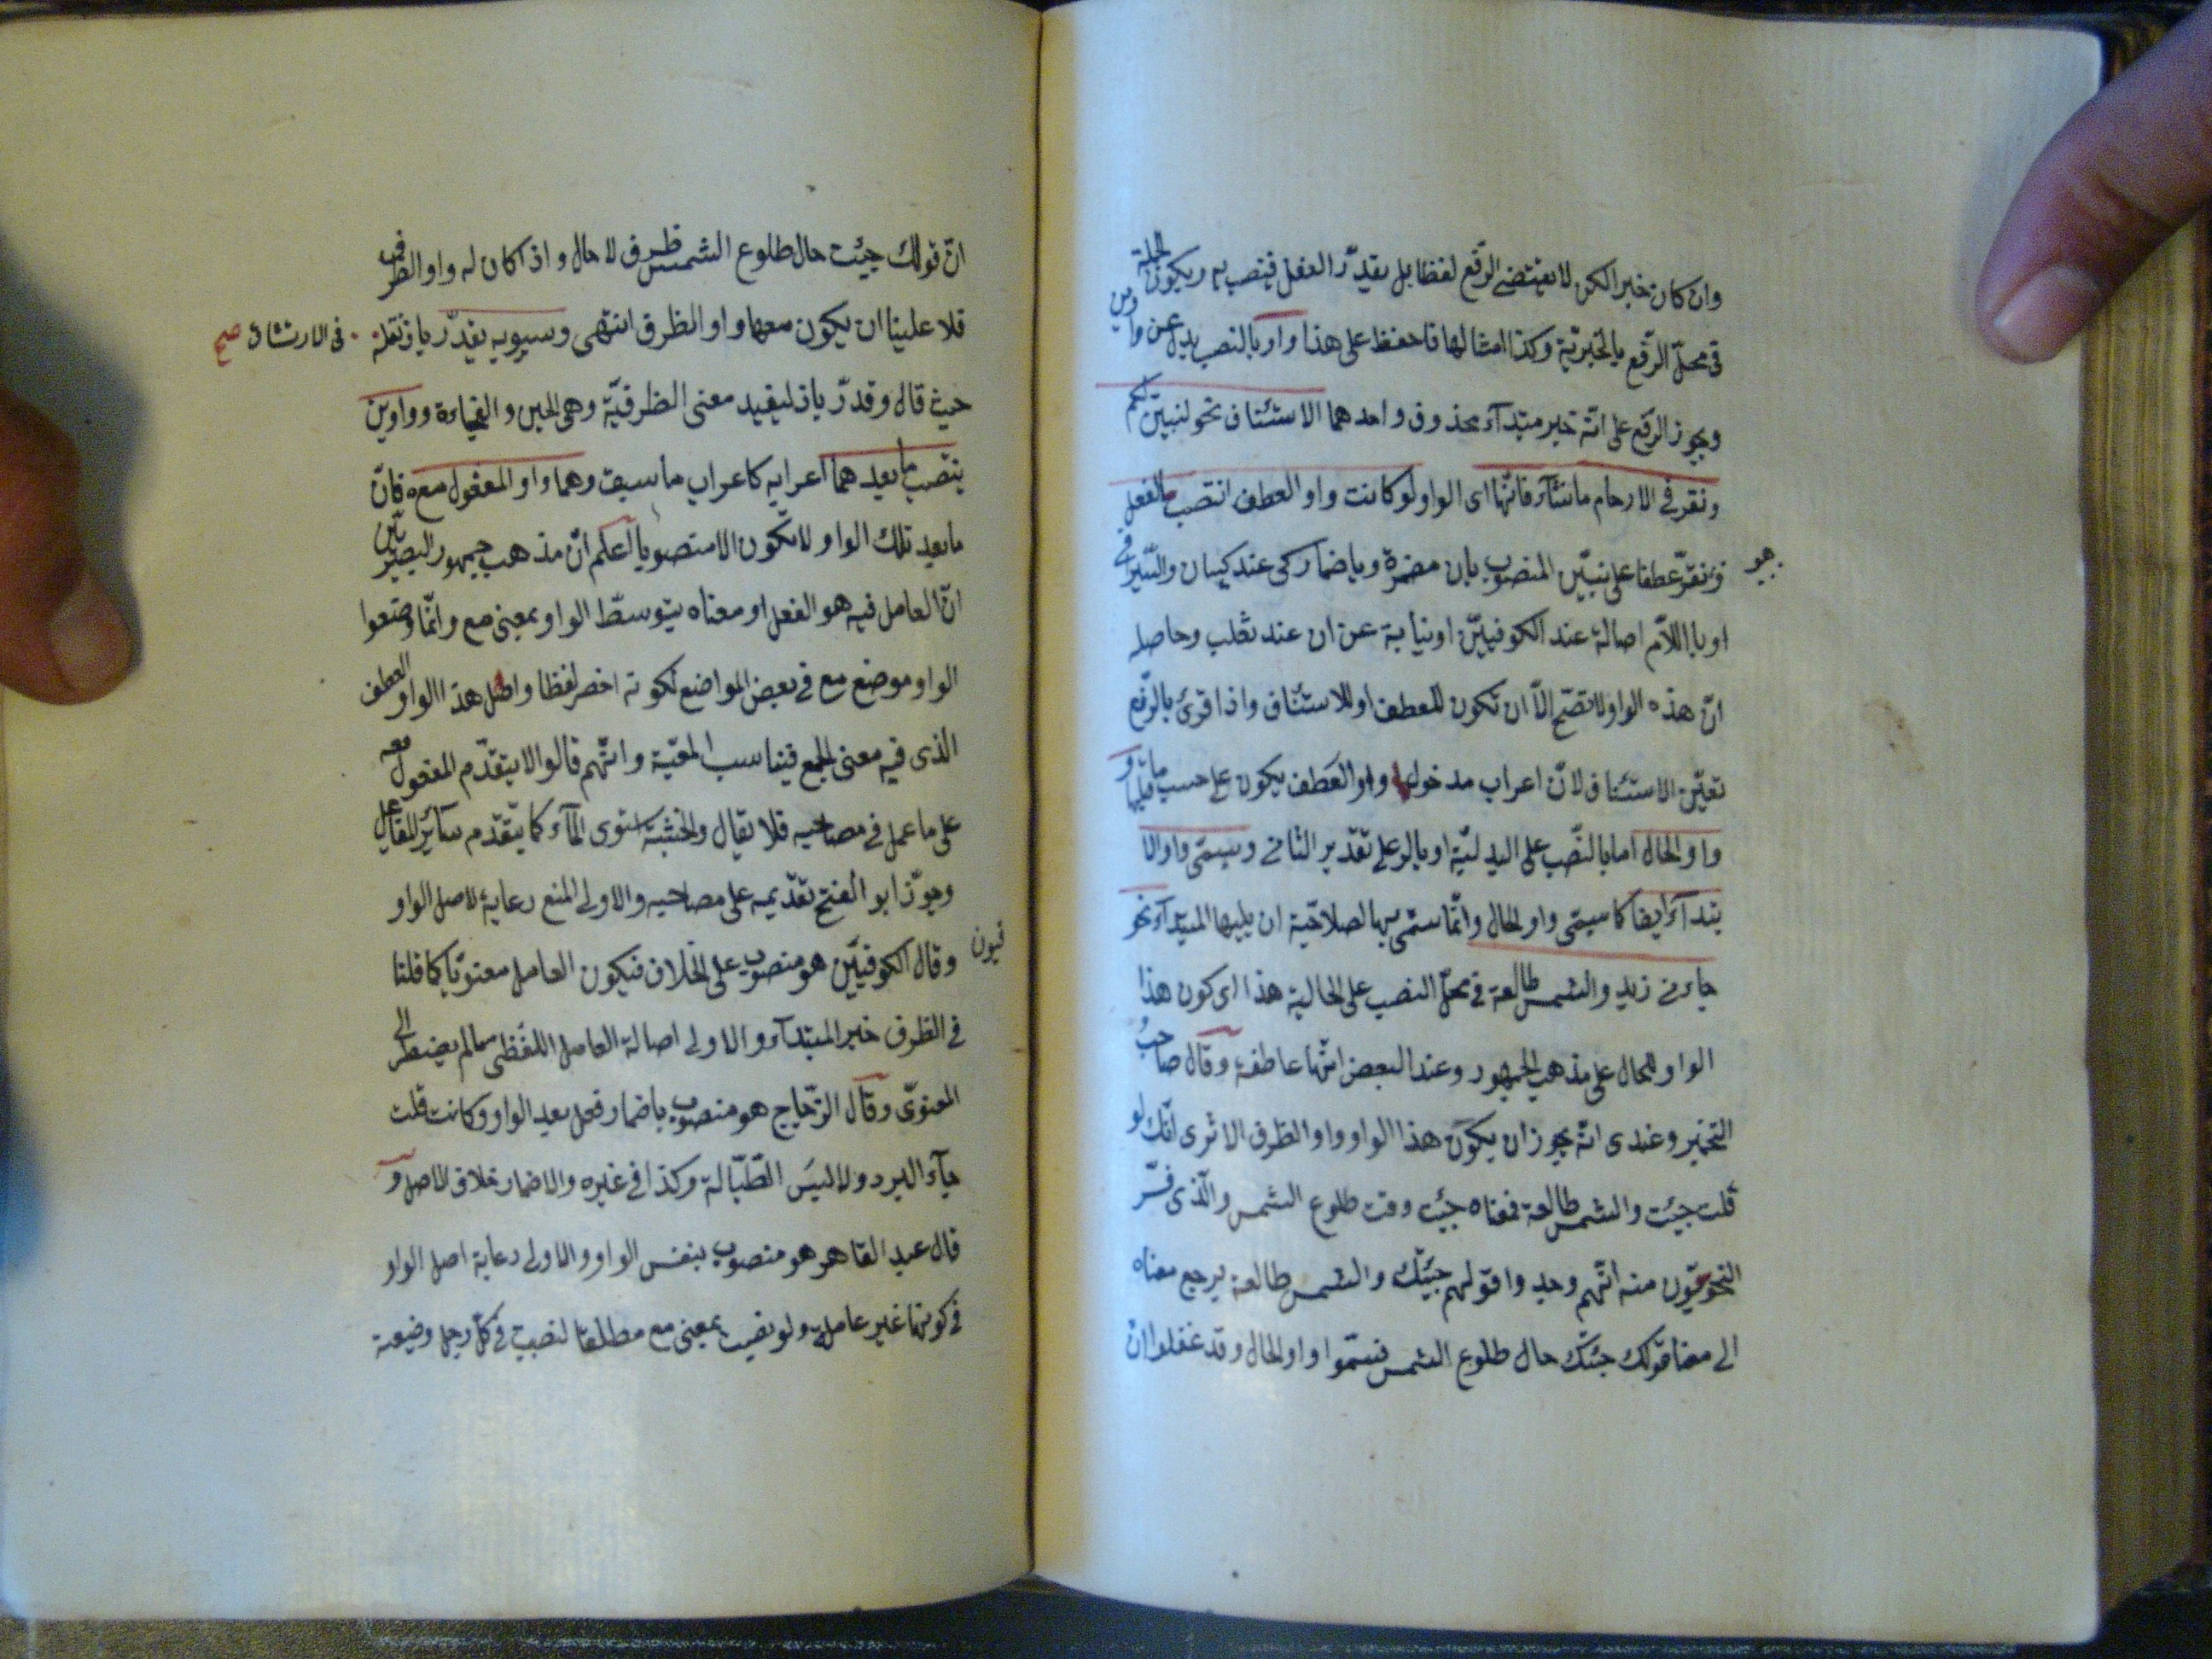 وان كان خبرا لكن لا يقتضى الرفع لفظا بل يقدّر الفعل فينصب به ويكون الجملة
فى محلّ الرّفع بالخبريّة وكذا امثالها فاحفظ على هذا واو بالنصب بدل عن واوين
ويجوز الرّفع على انّه خبر مبتدآء محذوف واحدهما الاستئناف نحو لنبيّن لكم
ونقر فى الارحام ما نشآء فانّها اى الواو لو كانت واو العطف انتصب الفعل
ونقرّ عطفا على نبيّن المنصوب بان مضمرة وباضمار كى عند كيسان والسّيرافى
هو
او باللاّم اصالة عند الكوفييّن او نيابة عن ان عند ثعلب وحاصله
انّ هذه الواو لا تصّح الاّ ان تكون للعطف او للاستئناف واذا قرئ بالرّفع
تعيّن الاستئناف لانّ اعراب مدخول واو العطف يكون على حسب ما قبلها و
واو الحال اما بالنّصب على البدليّة او بالرفع على تقدير الثانى ويسمّى واو الا
بتدآء ايضا كما سيمّى واو الحال وانّما سمّى بها لصلاحيّة ان يليها المبتدآء نحو
جاءنى زيد والشمس طالعة فى محلّ النصب على الحالية هذا اى كون هذا
الواو للحال على مذهب الجمهور وعند البعض انّها عاطفة وقال صاحب
التخمير وعندى انّه يجوز ان يكون هذا الواو واو الظرف الا ترى انّك لو
قلت جيئت والشمس طالعة فمعناه جيئت وقت طلوع الشمس والّذى فسّر
النحويّون منه انّهم وجدوا قولهم جيئتك والشمس طالعة يرجع معناه
الى معنا قولك جئتك حال طلوع الشمس فسمّوا واو الحال وقد غفلوا انّ
انّ قولك جيئت حال طلوع الشمس ظرف لا حال واذا كان له واو الظرف
فلا علينا ان يكون معها واو الظرف انتهى وسيبويه يقدّر باذ نقله
فى الارتشاف صح
حيث قال وقدّر باذ ليفيد معنى الظرفيّة وهى الحين والفجاءة وواوين
ينتصب ما بعدهما اعرابه كاعراب ما سبق وهما واو المفعول معه فانّ
ما بعد تلك الواو لا يكون الا منصوبا اعلم انّ مذهب جمهور البصريّين
انّ العامل فيه هو الفعل او معناه بتوسّط الواو بمعنى مع وانّما وضعوا
الواو موضع مع فى بعض المواضع لكونه اخصر لفظا واصل هذا الواو العطف
الذى فيه معنى الجمع فيناسب المعيّة وانّهم قالوا لا يتقدّم المفعول معه
على ما عمل فى مصاحبه فلا يقال والخشبة استوى المآء كما يتقدّم سآئر المفاعيل
وجوّز ابو الفتح تقديمه على مصاحبه والاولى المنع رعاية لاصل الواو
وقال الكوفييّن هو منصوب على الخلاف فيكون العامل معنويّا كما قلنا
فيون
فى الظرف خبر المبتدآء والاولى اصالة العامل اللفظى ما لم يضطر الى
المعنوىّ وقال الزّجاج هو منصوب باضمار فعل بعد الواو وكانت قلت
جآء البرد ولابس الطّيالة وكذا فى غيره والاضمار خلاف الاصل و
قال عبد القاهر هو منصوب بنفس الواو والاولى رعاية اصل الواو
فى كونها غير عاملة ولو نصبت بمعنى مع مطلقا لنصبت فى كل رجل وضيعة